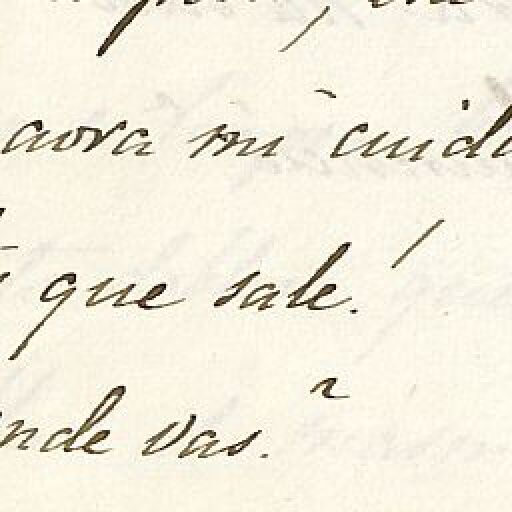 aora mi cuida
que sale!
nde vas?